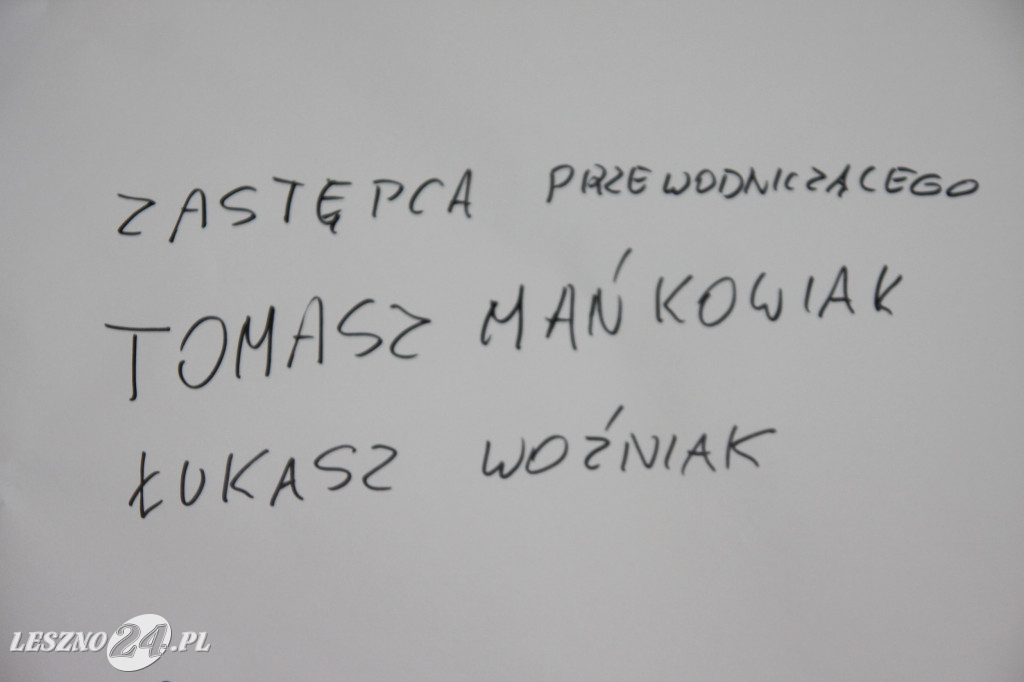 ZASTĘPCA PRZEWODNICZĄCEGO
TOMASZ MAŃKOWIAK
ŁUKASZ WOŹNIAK
LESZNO24.PL